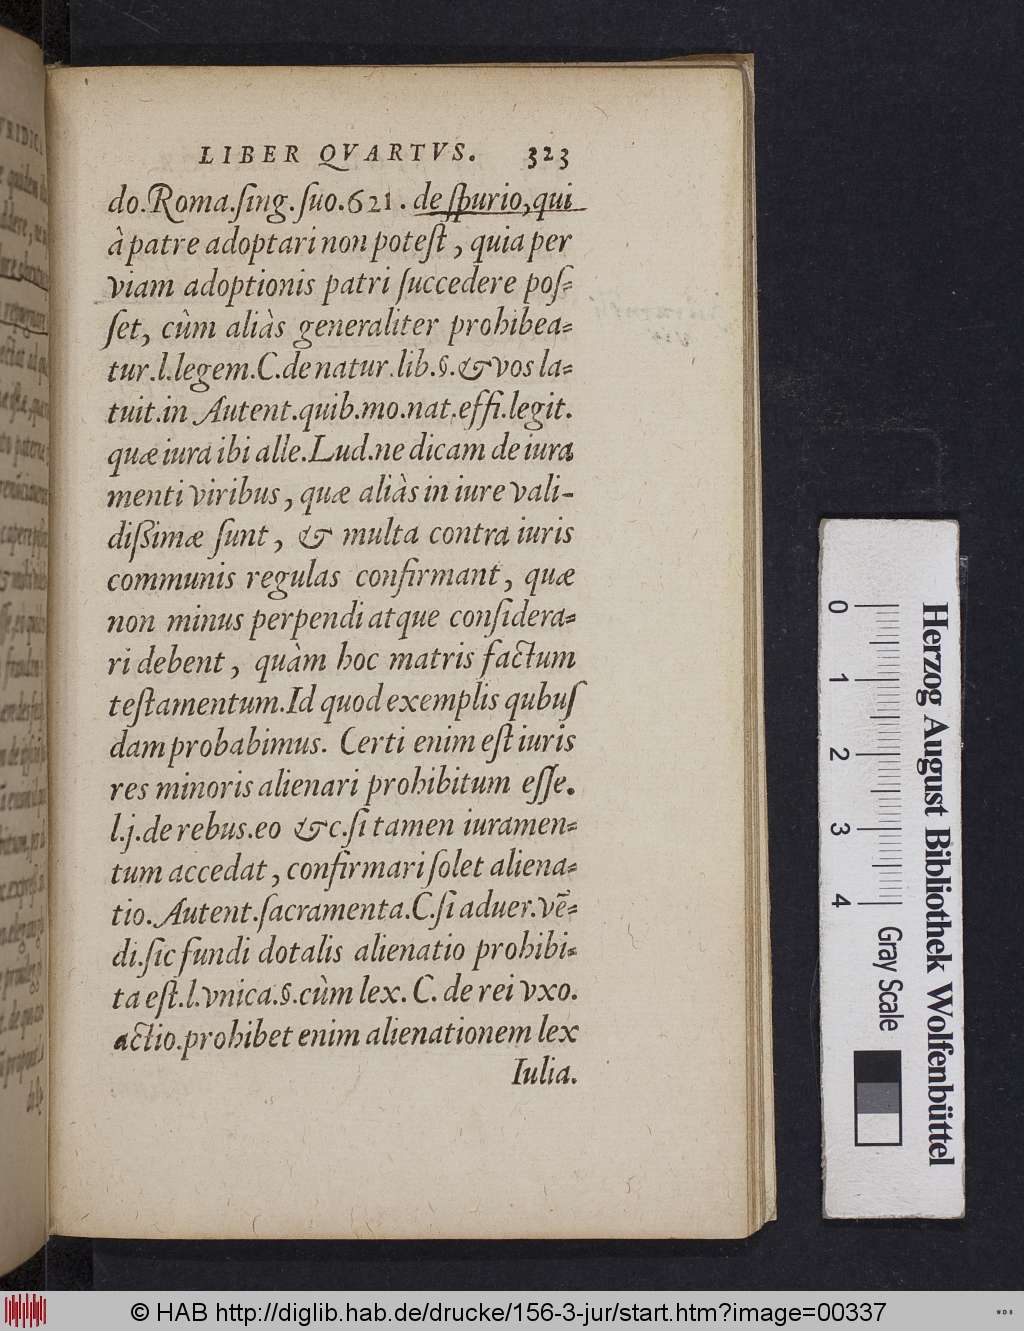 LIBER QVARTVS. 323
do.Roma.ſing.ſuo.621. de ſpurio, qui
à patre adoptari non poteſt, quia per
viam adoptionis patri ſuccedere poſ=
ſet, cùm aliàs generaliter prohibea=
tur.l.legem.C.de natur.lib.§.& vos la=
tuit.in Autent.quib.mo.nat.effi.legit.
quæ iura ibi alle.Lud.ne dicam de iura
menti viribus, quæ aliàs in iure vali-
dißimæ ſunt, & multa contra iuris
communis regulas confirmant, quæ
non minus perpendi atque conſidera=
ri debent, quàm hoc matris factum
teſtamentum.Id quod exemplis qubuſ
dam probabimus. Certi enim eſt iuris
res minoris alienari prohibitum eſſe.
l.j.de rebus.eo &c.ſi tamen iuramen=
tum accedat, confirmari ſolet aliena=
tio.Autent.ſacramenta.C.ſi aduer.vē=
di.ſic fundi dotalis alienatio prohibi=
ta eſt.l.vnica.§.cùm lex. C. de rei vxo.
actio.prohibet enim alienationem lex
Iulia.
Herzog August Bibliothek Wolfenbüttel
0 1 2 3 4
Gray Scale
© HAB http://diglib.hab.de/drucke/156-3-jur/start.htm?image=00337